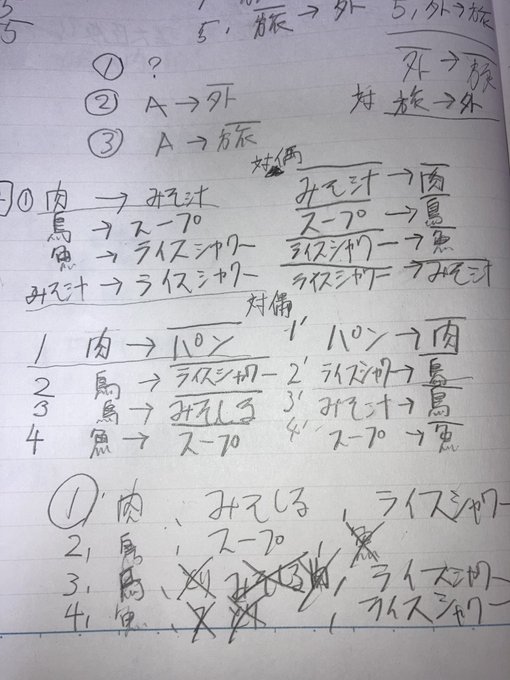 5 5, 旅 → 外 5, 外→旅
① ? 外 → 旅
② A → 外 対 旅 → 外
③ A → 旅
対偶
① 肉 → みそ汁 みそ汁 → 肉
鳥 → スープ スープ → 鳥
魚 → ライスシャワー ライスシャワー → 魚
みそ汁 → ライスシャワー ライスシャワー → みそ汁
対偶
1 肉 → パン 1' パン → 肉
2 鳥 → ライスシャワー 2' ライスシャワー → 鳥
3 鳥 → みそしる 3' みそ汁 → 鳥
4 魚 → スープ 4' スープ → 魚
①, 肉、みそしる、ライスシャワー
2, 鳥、スープ、魚
3, 鳥、みそしる、ライスシャワー
4, 魚、ライスシャワー